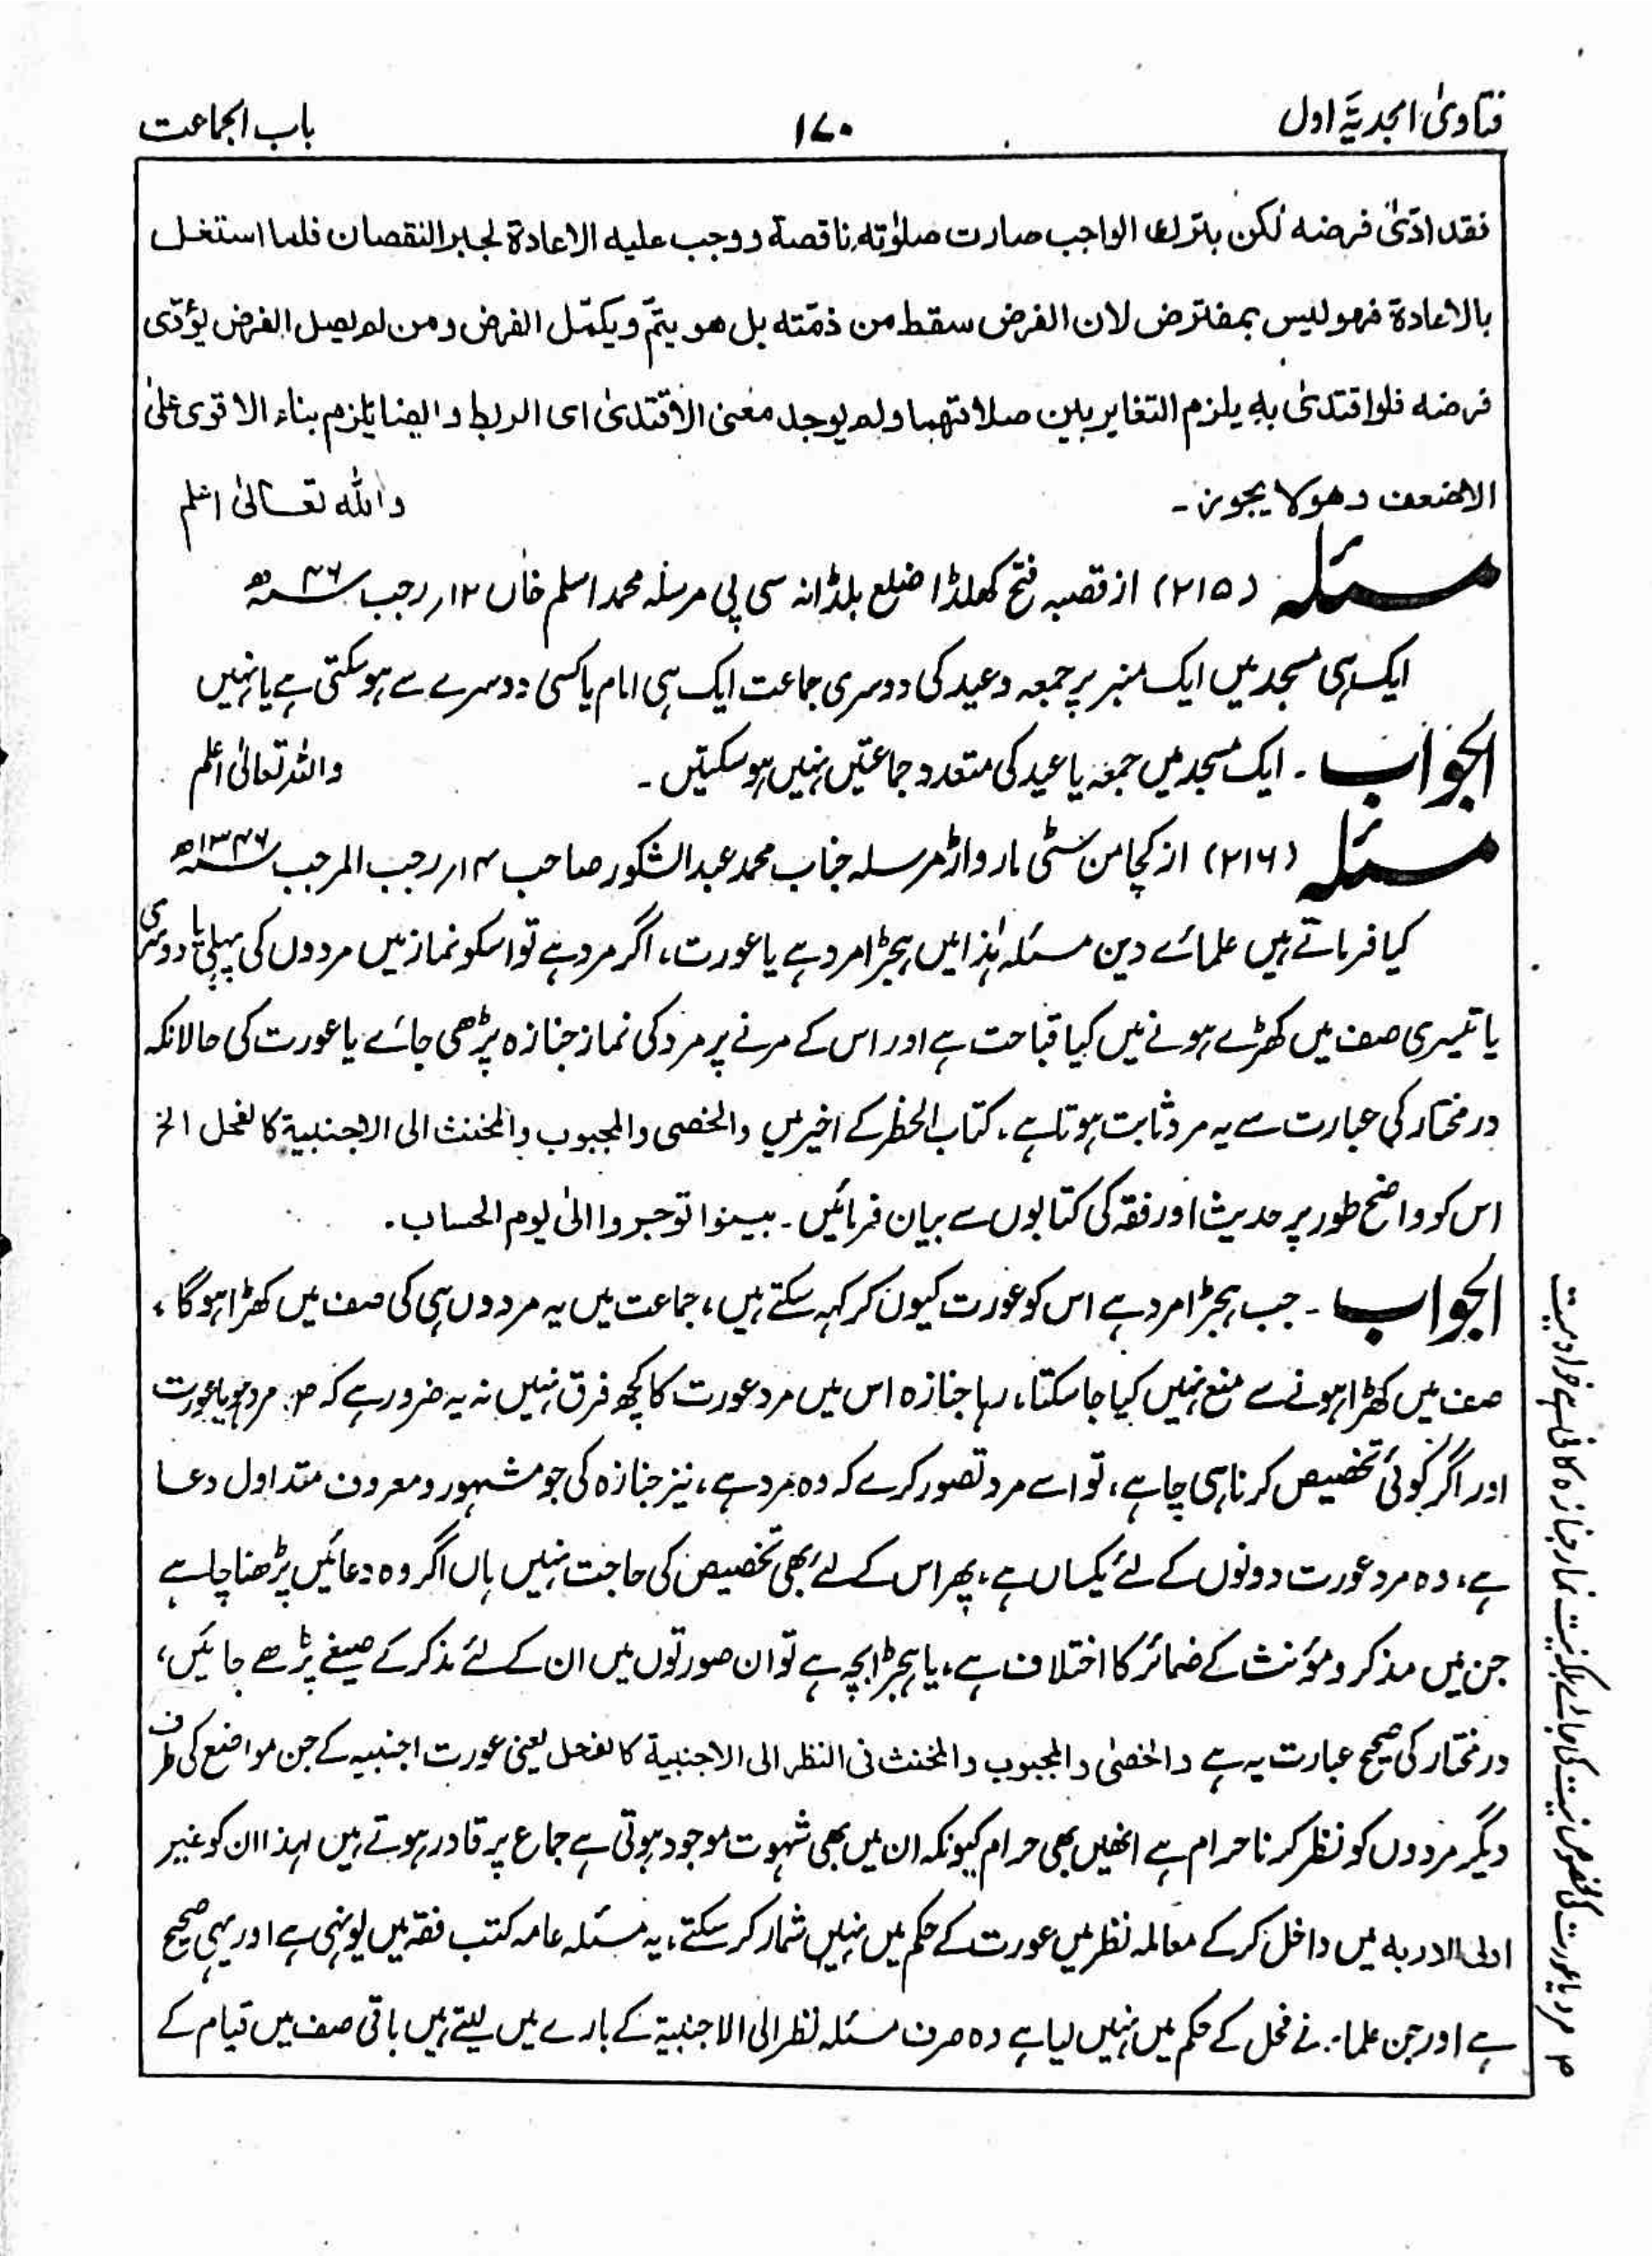 فتاویٰ امجدیہ اول
۱۷۰
باب الجماعت
فقد ادّیٰ فرضہ لکن بترک الواجب صارت صلوٰتہ ناقصۃ ووجب علیہ الاعادۃ لجبر النقصان فلما استغل
بالاعادۃ فھو لیس بمفترض لان الفرض سقط من ذمّتہ بل ھو یتمّ ویکمّل الفرض ومن لم یصل الفرض یؤدّی
فرضہ فلو اقتدیٰ بہٖ یلزم التغایر بین صلاتھما ولم یوجد معنی الاقتدیٰ ای الربط وایضا یلزم بناء الاقوی علیٰ
الاضعف وھو لا یجوز۔ واللہ تعالیٰ اعلم
مسئلہ (۲۱۵) از قصبہ فتح کھلڈا ضلع بلڈانہ سی پی مرسلہ محمد اسلم خاں ۱۲ر رجب ۴۶ سنہ ھ
ایک ہی مسجد میں ایک منبر پر جمعہ وعید کی دوسری جماعت ایک ہی امام یا کسی دوسرے سے ہوسکتی ہے یا نہیں
الجواب ۔ ایک مسجد میں جمعہ یا عید کی متعدد جماعتیں نہیں ہوسکتیں ۔ واللہ تعالیٰ اعلم
مسئلہ (۲۱۶) از کچامن سٹی مارواڑ مرسلہ جناب محمد عبدالشکور صاحب ۱۴ر رجب المرجب ۱۳۴۶ سنہ ھ
کیا فرماتے ہیں علمائے دین مسئلہ ہٰذا میں ہیجڑا مرد ہے یا عورت، اگر مرد ہے تو اسکو نماز میں مردوں کی پہلی یا دوسری
یا تیسری صف میں کھڑے ہونے میں کیا قباحت ہے اور اس کے مرنے پر مرد کی نماز جنازہ پڑھی جائے یا عورت کی حالانکہ
درمختار کی عبارت سے یہ مرد ثابت ہوتا ہے ۔ کتاب الحظر کے اخیر میں والخصی والمجبوب والمخنث الی الاجنبیۃ کالفحل الخ
اس کو واضح طور پر حدیث اور فقہ کی کتابوں سے بیان فرمائیں ۔ بینوا توجروا الیٰ یوم الحساب ۔
الجواب ۔ جب ہیجڑا مرد ہے اس کو عورت کیوں کر کہہ سکتے ہیں، جماعت میں یہ مردوں ہی کی صف میں کھڑا ہوگا،
صف میں کھڑا ہونے سے منع نہیں کیا جاسکتا، رہا جنازہ اس میں مرد عورت کا کچھ فرق نہیں نہ یہ ضرور ہے کہ ص۳ مرد ہو یا عورت
اور اگر کوئی تخصیص کرنا ہی چاہے، تو اسے مرد تصور کرے کہ وہ مرد ہے، نیز جنازہ کی جو مشہور ومعروف متداول دعا
ہے، وہ مرد عورت دونوں کے لئے یکساں ہے، پھر اس کے لئے بھی تخصیص کی حاجت نہیں ہاں اگر وہ دعائیں پڑھنا چاہے
جن میں مذکر ومؤنث کے ضمائر کا اختلاف ہے، یا ہیجڑا بچہ ہے تو ان صورتوں میں ان کے لئے مذکر کے صیغے پڑھے جائیں،
درمختار کی صحیح عبارت یہ ہے والخصیٰ والمجبوب والمخنث فی النظر الی الاجنبیۃ کالفحل یعنی عورت اجنبیہ کے جن مواضع کی طرف
دیگر مردوں کو نظر کرنا حرام ہے انھیں بھی حرام کیونکہ ان میں بھی شہوت موجود ہوتی ہے جماع پر قادر ہوتے ہیں لہٰذا ان کو غیر
اولی الاربہ میں داخل کرکے معاملہ نظر میں عورت کے حکم میں نہیں شمار کرسکتے، یہ مسئلہ عامہ کتب فقہ میں یونہی ہے اور یہی صحیح
ہے اور جن علماء نے فحل کے حکم میں نہیں لیا ہے وہ صرف مسئلہ نظر الی الاجنبیۃ کے بارے میں لیتے ہیں باقی صف میں قیام کے
مرد یا عورت کی مخصوص نیت کی جائے بلکہ نیت نماز جنازہ کافی ہے خواہ میت